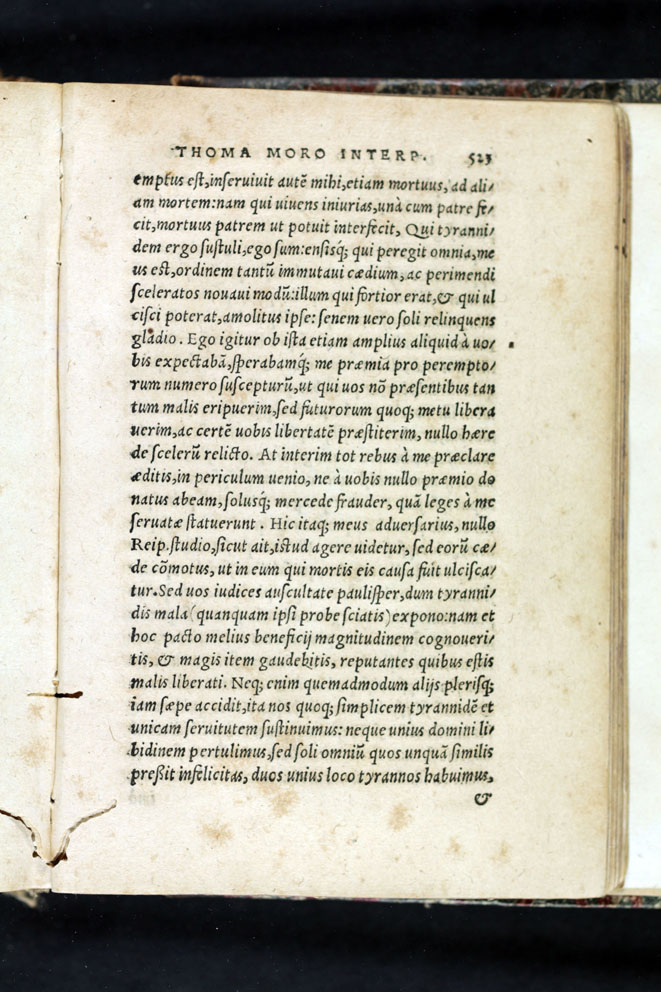 THOMA MORO INTERP. 523
emptus est,inseruiuit autē mihi,etiam mortuus, ad ali/
am mortem:nam qui uiuens iniurias,unà cum patre fe/
cit,mortuus patrem ut potuit interfecit, Qui tyranni/
dem ergo sustuli,ego sum:ensisq́; qui peregit omnia,me
us est,ordinem tantũ immutaui cædium, ac perimendi
sceleratos nouaui modũ:illum qui fortior erat,& qui ul
cisci poterat,amolitus ipse: senem uero soli relinquens
gladio. Ego igitur ob ista etiam amplius aliquid à uo/
bis expectabã,sperabamq́; me præmia pro perempto/
rum numero suscepturũ,ut qui uos nõ præsentibus tan
tum malis eripuerim,sed futurorum quoq; metu libera
uerim,ac certē uobis libertatē præstiterim, nullo hære
de scelerũ relicto. At interim tot rebus à me præclare
æditis,in periculum uenio, ne à uobis nullo præmio do
natus abeam,solusq́; mercede frauder, quã leges à me
seruatæ statuerunt. Hic itaq; meus aduersarius, nullo
Reip.studio,sicut ait,istud agere uidetur, sed eorũ cæ/
de cõmotus, ut in eum qui mortis eis causa fuit ulcisca/
tur.Sed uos iudices auscultate paulisper,dum tyranni/
dis mala(quanquam ipsi probe sciatis)expono:nam et
hoc pacto melius beneficij magnitudinem cognoueri/
tis, & magis item gaudebitis, reputantes quibus estis
malis liberati. Neq; enim quemadmodum alijs plerisq;
iam sæpe accidit,ita nos quoq; simplicem tyrannidē et
unicam seruitutem sustinuimus: neque unius domini li/
bidinem pertulimus,sed soli omniũ quos unquã similis
preßit infelicitas, duos unius loco tyrannos habuimus,
&